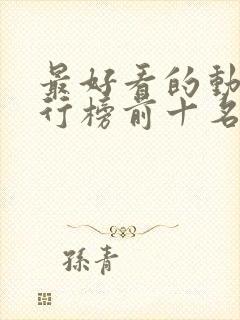 最好看的動
行榜前十名
孫青